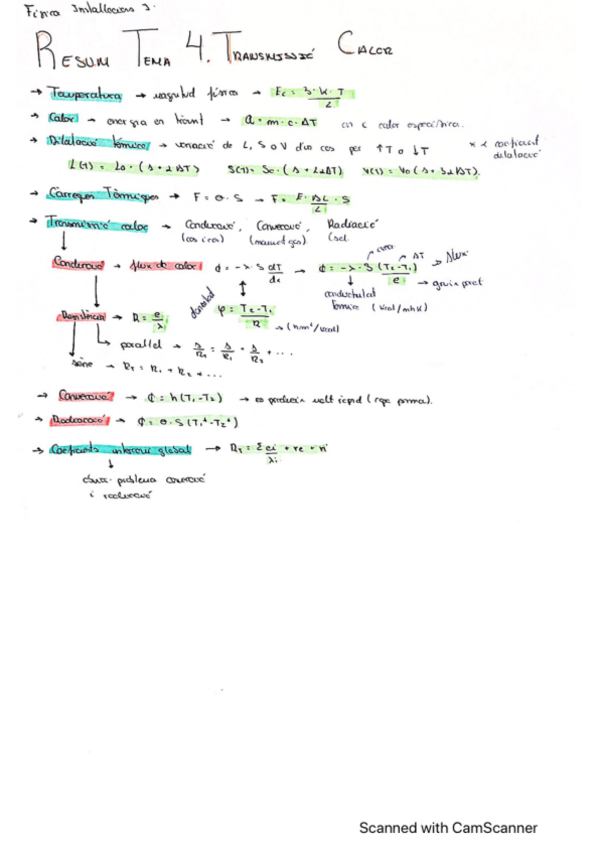 Física Instal·lacions 3.
RESUM TEMA 4. TRANSMISSIÓ CALOR
→ Temperatura → magnitud física → Ec = 3·k·T / 2
→ Calor → energia en trànsit → Q = m·c·ΔT on c calor específica.
→ Dilatació tèrmica → variació de L, S o V d'un cos per ↑T o ↓T * α coeficient dilatació
L(t) = L0·(1+αΔT) S(t) = S0·(1+2αΔT) V(t) = V0(1+3αΔT).
→ Càrregues Tèrmiques → F = σ·S → F = E·ΔL / L · S
→ Transmissió calor → Conducció, Convecció, Radiació
(cos (gas) (sol.
Conducció → flux de calor ϕ = -λ·S dT/dx → ϕ = -λ·S (T2-T1) / e → gruix paret
àrea ΔT → flux
conductivitat tèrmica (kcal/mhK)
Resistència → R = e/λ densitat φ = T2-T1 / R → (hm²/kcal)
paral·lel → 1/RT = 1/R1 + 1/R2 + ...
sèrie → RT = R1 + R2 + ...
→ Convecció → ϕ = h(T1-T2) → es produeix molt ràpid
→ Radiació → ϕ = σ·S (T1⁴-T2⁴)
→ Coeficients global → RT = Σ ei/λi + re + ri
problema convecció
i radiació
Scanned with CamScanner